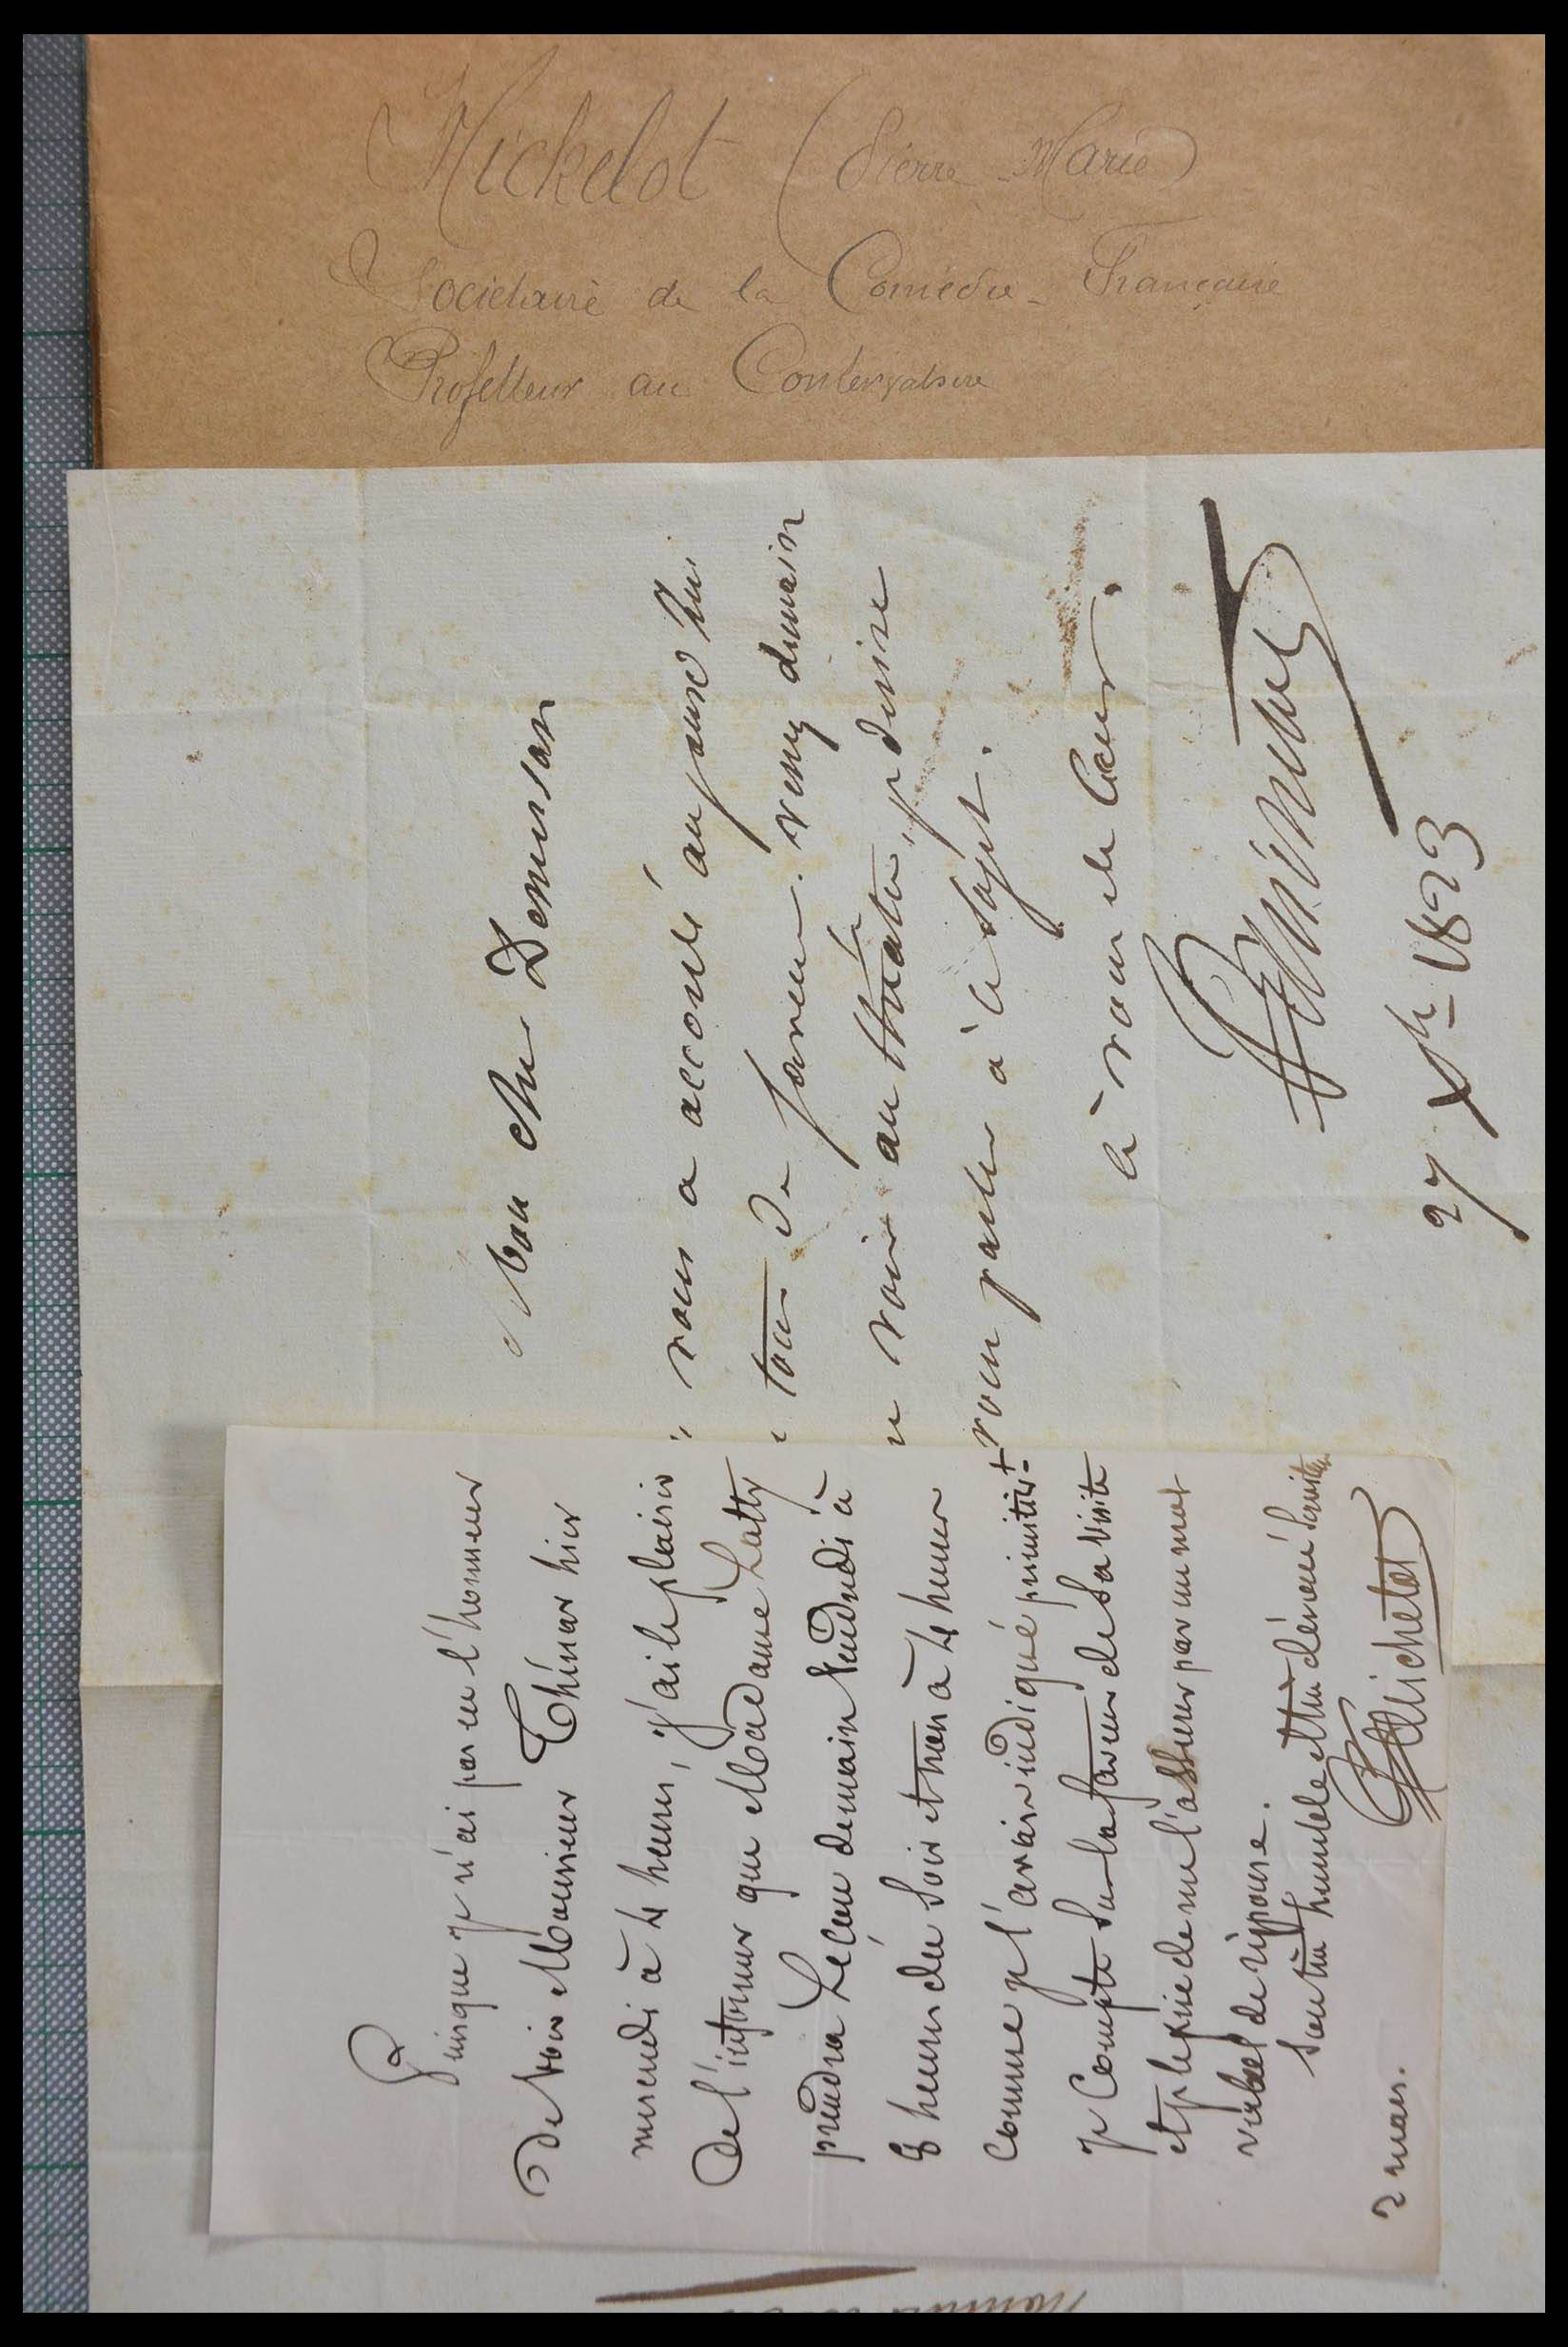 Michelot (Pierre-Marie)
Sociétaire de la Comédie-Française
Professeur au Conservatoire
Mon cher Demersan
vous a accordé aujourd'hui
tour de faveur. venez demain
voir au théâtre, je désire
vous parler à ce sujet.
à vous de coeur.
27 Xbre 1823
Puisque je n'ai pas eu l'honneur
de voir Monsieur Thénar hier
mercredi à 4 heures, j'ai le plaisir
de l'informer que Madame Latty
prendra Leçon demain Vendredi à
8 heures du Soir et non à 4 heures
comme je l'avais indiqué primitivt
je Compte Sur la faveur de Sa visite
et je le prie de me l'assurer par un mot
verbal de réponse.
Son très humble et très dévoué Serviteur
Michelot
2 mars.